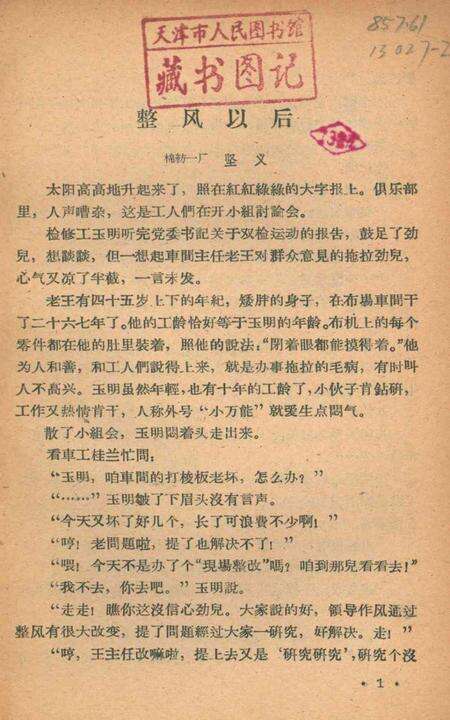 天津市人民图书馆
藏书图记
857.61
13027-2
整风以后
棉纺一厂 坚义
太阳高高地升起来了，照在紅紅綠綠的大字报上。俱乐部
里，人声嘈杂，这是工人們在开小組討論会。
检修工玉明听完党委书記关于双检运动的报告，鼓足了劲
兒，想談談，但一想起車間主任老王对群众意見的拖拉劲兒，
心气又凉了半截，一言未发。
老王有四十五岁上下的年紀，矮胖的身子，在布場車間干
了二十六七年了。他的工齡恰好等于玉明的年龄。布机上的每个
零件都在他的肚里裝着，照他的說法：“閉着眼都能摸得着。”他
为人和善，和工人們說得上来，就是办事拖拉的毛病，有时叫
人不高兴。玉明虽然年輕，也有十年的工齡了，小伙子肯鉆研，
工作又热情肯干，人称外号“小万能”就爱生点悶气。
散了小組会，玉明悶着头走出来。
看車工桂兰忙問：
“玉明，咱車間的打梭板老坏，怎么办？”
“……”玉明皺了下眉头沒有言声。
“今天又坏了好几个，长了可浪費不少啊！”
“哼！老問題啦，提了也解决不了！”
“喂！今天不是办了个“現場整改”嗎？咱到那兒看看去！”
“我不去，你去吧。”玉明說。
“走走！瞧你这沒信心劲兒。大家說的好，領导作风通过
整风有很大改变，提了問題經过大家一硏究，好解决。走！”
“哼，王主任改嘛啦，提上去又是‘硏究硏究’，硏究个沒
• 1 •